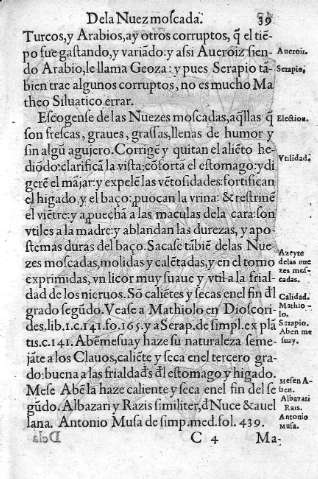 Dela Nuez moscada. 39
Turcos, y Arabios, ay otros corruptos, q̃ el tiē-
po fue gastando, y variādo. y assi Aueroiz sien-
do Arabio, le llama Geoza: y pues Serapio tā-
bien trae algunos corruptos, no es mucho Ma-
theo Siluatico errar.
Escogense de las Nuezes moscadas, aq̃llas q̃
son frescas, graues, grassas, llenas de humor y
sin algū agujero. Corrige y quitan el aliēto he-
diōdo: clarificā la vista; cōforta el estomago: y di
gerē el mājar: y expelē las vētosidades: fortifican
el higado, y el baço: prouocan la vrina: & restrinē
el viētre: y apuechā a las maculas dela cara: son
vtiles a la madre: y ablandan las durezas, y apo-
stemas duras del baço. Sacase tābiē delas Nue
zes moscadas, molidas y calētadas, y en el torno
exprimidas, vn licor muy suaue y vtil a la frial-
dad de los nieruos. Sō caliētes y secas enel fin đl
grado segūdo. Vease a Mathiolo en Dioscori-
des. lib. 1. c. 141. fo. 165. y a Serap. de simpl. ex plā
tis. c. 141. Abēmesuay haze su naturaleza seme-
jāte a los Clauos, caliēte y seca enel tercero gra-
do: buena a las frialdads đl estomago y higado.
Mese Abēla haze caliente y seca enel fin del se
gūdo. Albazari y Razis similiter, đ Nuce & auel
lana. Antonio Musa de simp. med. fol. 439.
C 4 Ma-
Aueroiz.
Serapio.
Election.
Vtilidad.
Azeyte
delas nue
zes mos-
cadas.
Calidad.
Mathio-
lo.
Serapio.
Aben me
suay.
Mesen A-
ben.
Albazari
Rais.
Antonio
Musa.